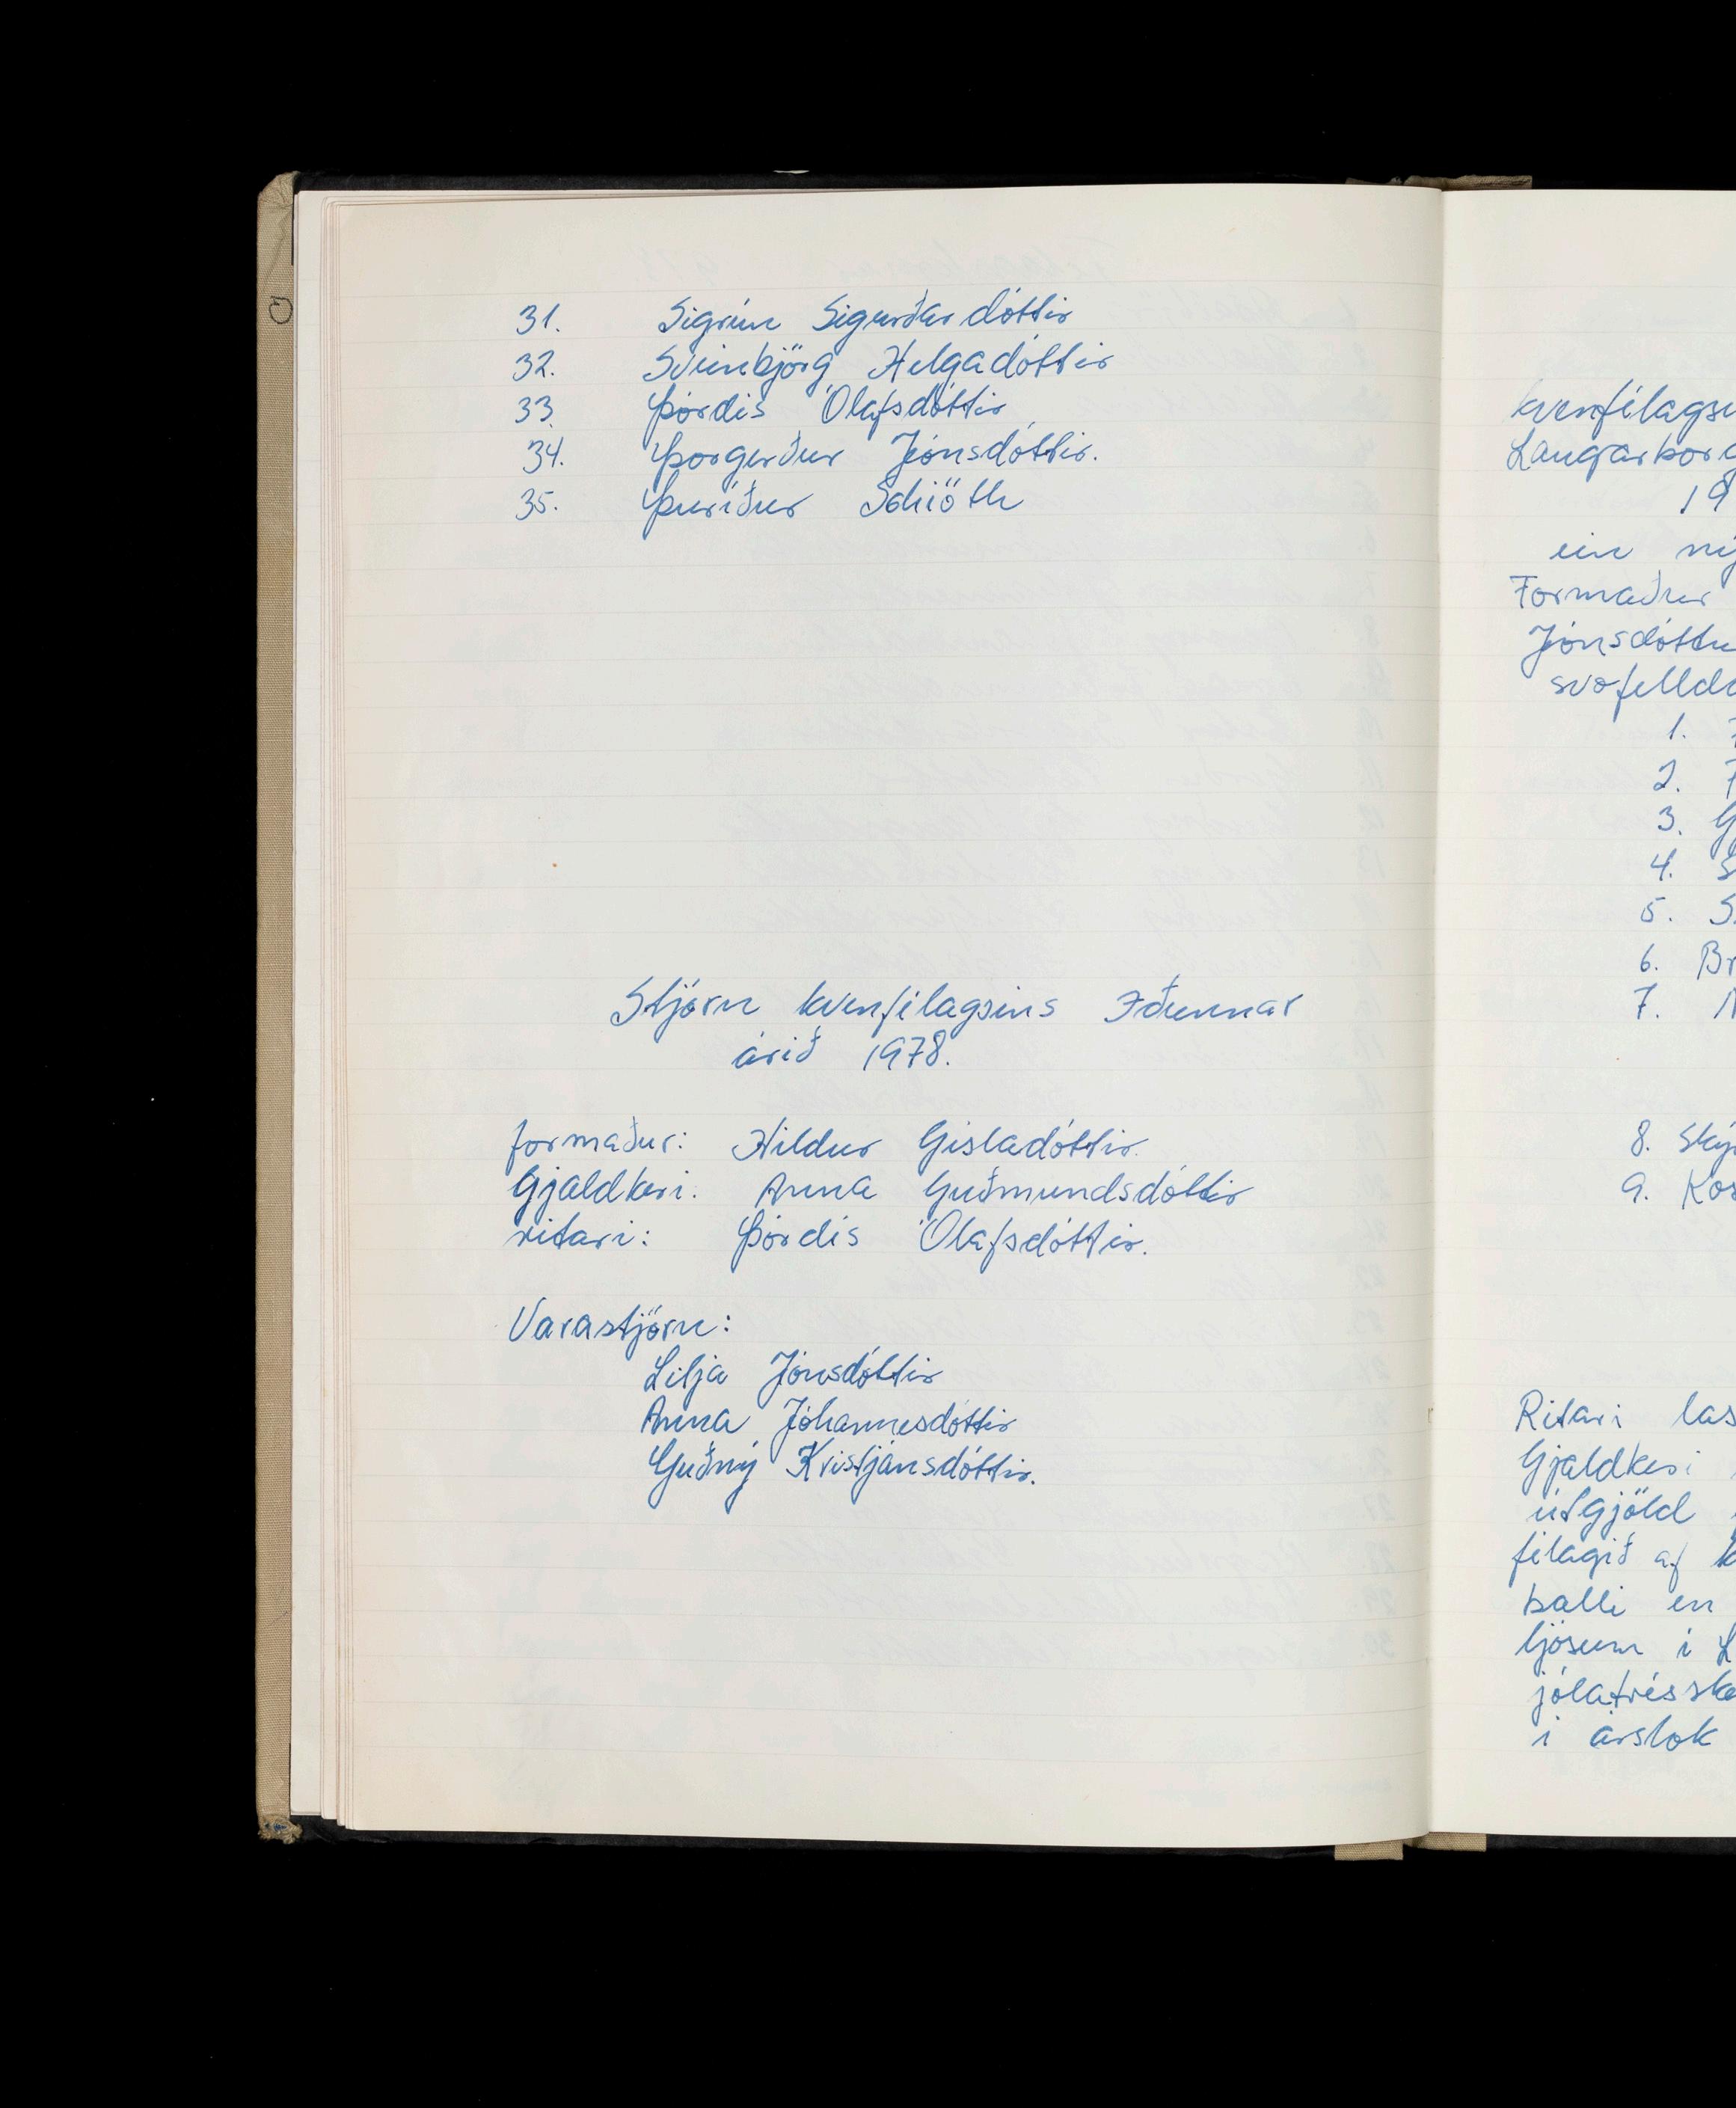 31. Sigrún Sigurðardóttir
32. Sveinbjörg Helgadóttir
33. Þórdís Ólafsdóttir
34. Þorgerður Jónsdóttir.
35. Þuríður Schiöth
Stjórn kvenfélagsins Iðunnar
árið 1978.
formaður: Hildur Gísladóttir.
Gjaldkeri: Anna Guðmundsdóttir
ritari: Þórdís Ólafsdóttir.
Varastjórn:
Lilja Jónsdóttir
Anna Jóhannesdóttir
Guðný Kristjánsdóttir.
kvenfélagsi
Laugarborg
19
ein ný
Formaður
Jónsdóttu
svofelld
1.
2.
3. G
4. S
5. S
6. Br
7.
8. Ský
9. Kos
Ritari las
Gjaldkeri
útgjöld
félagið af
balli en
ljósum í L
jólatrésske
í árslok